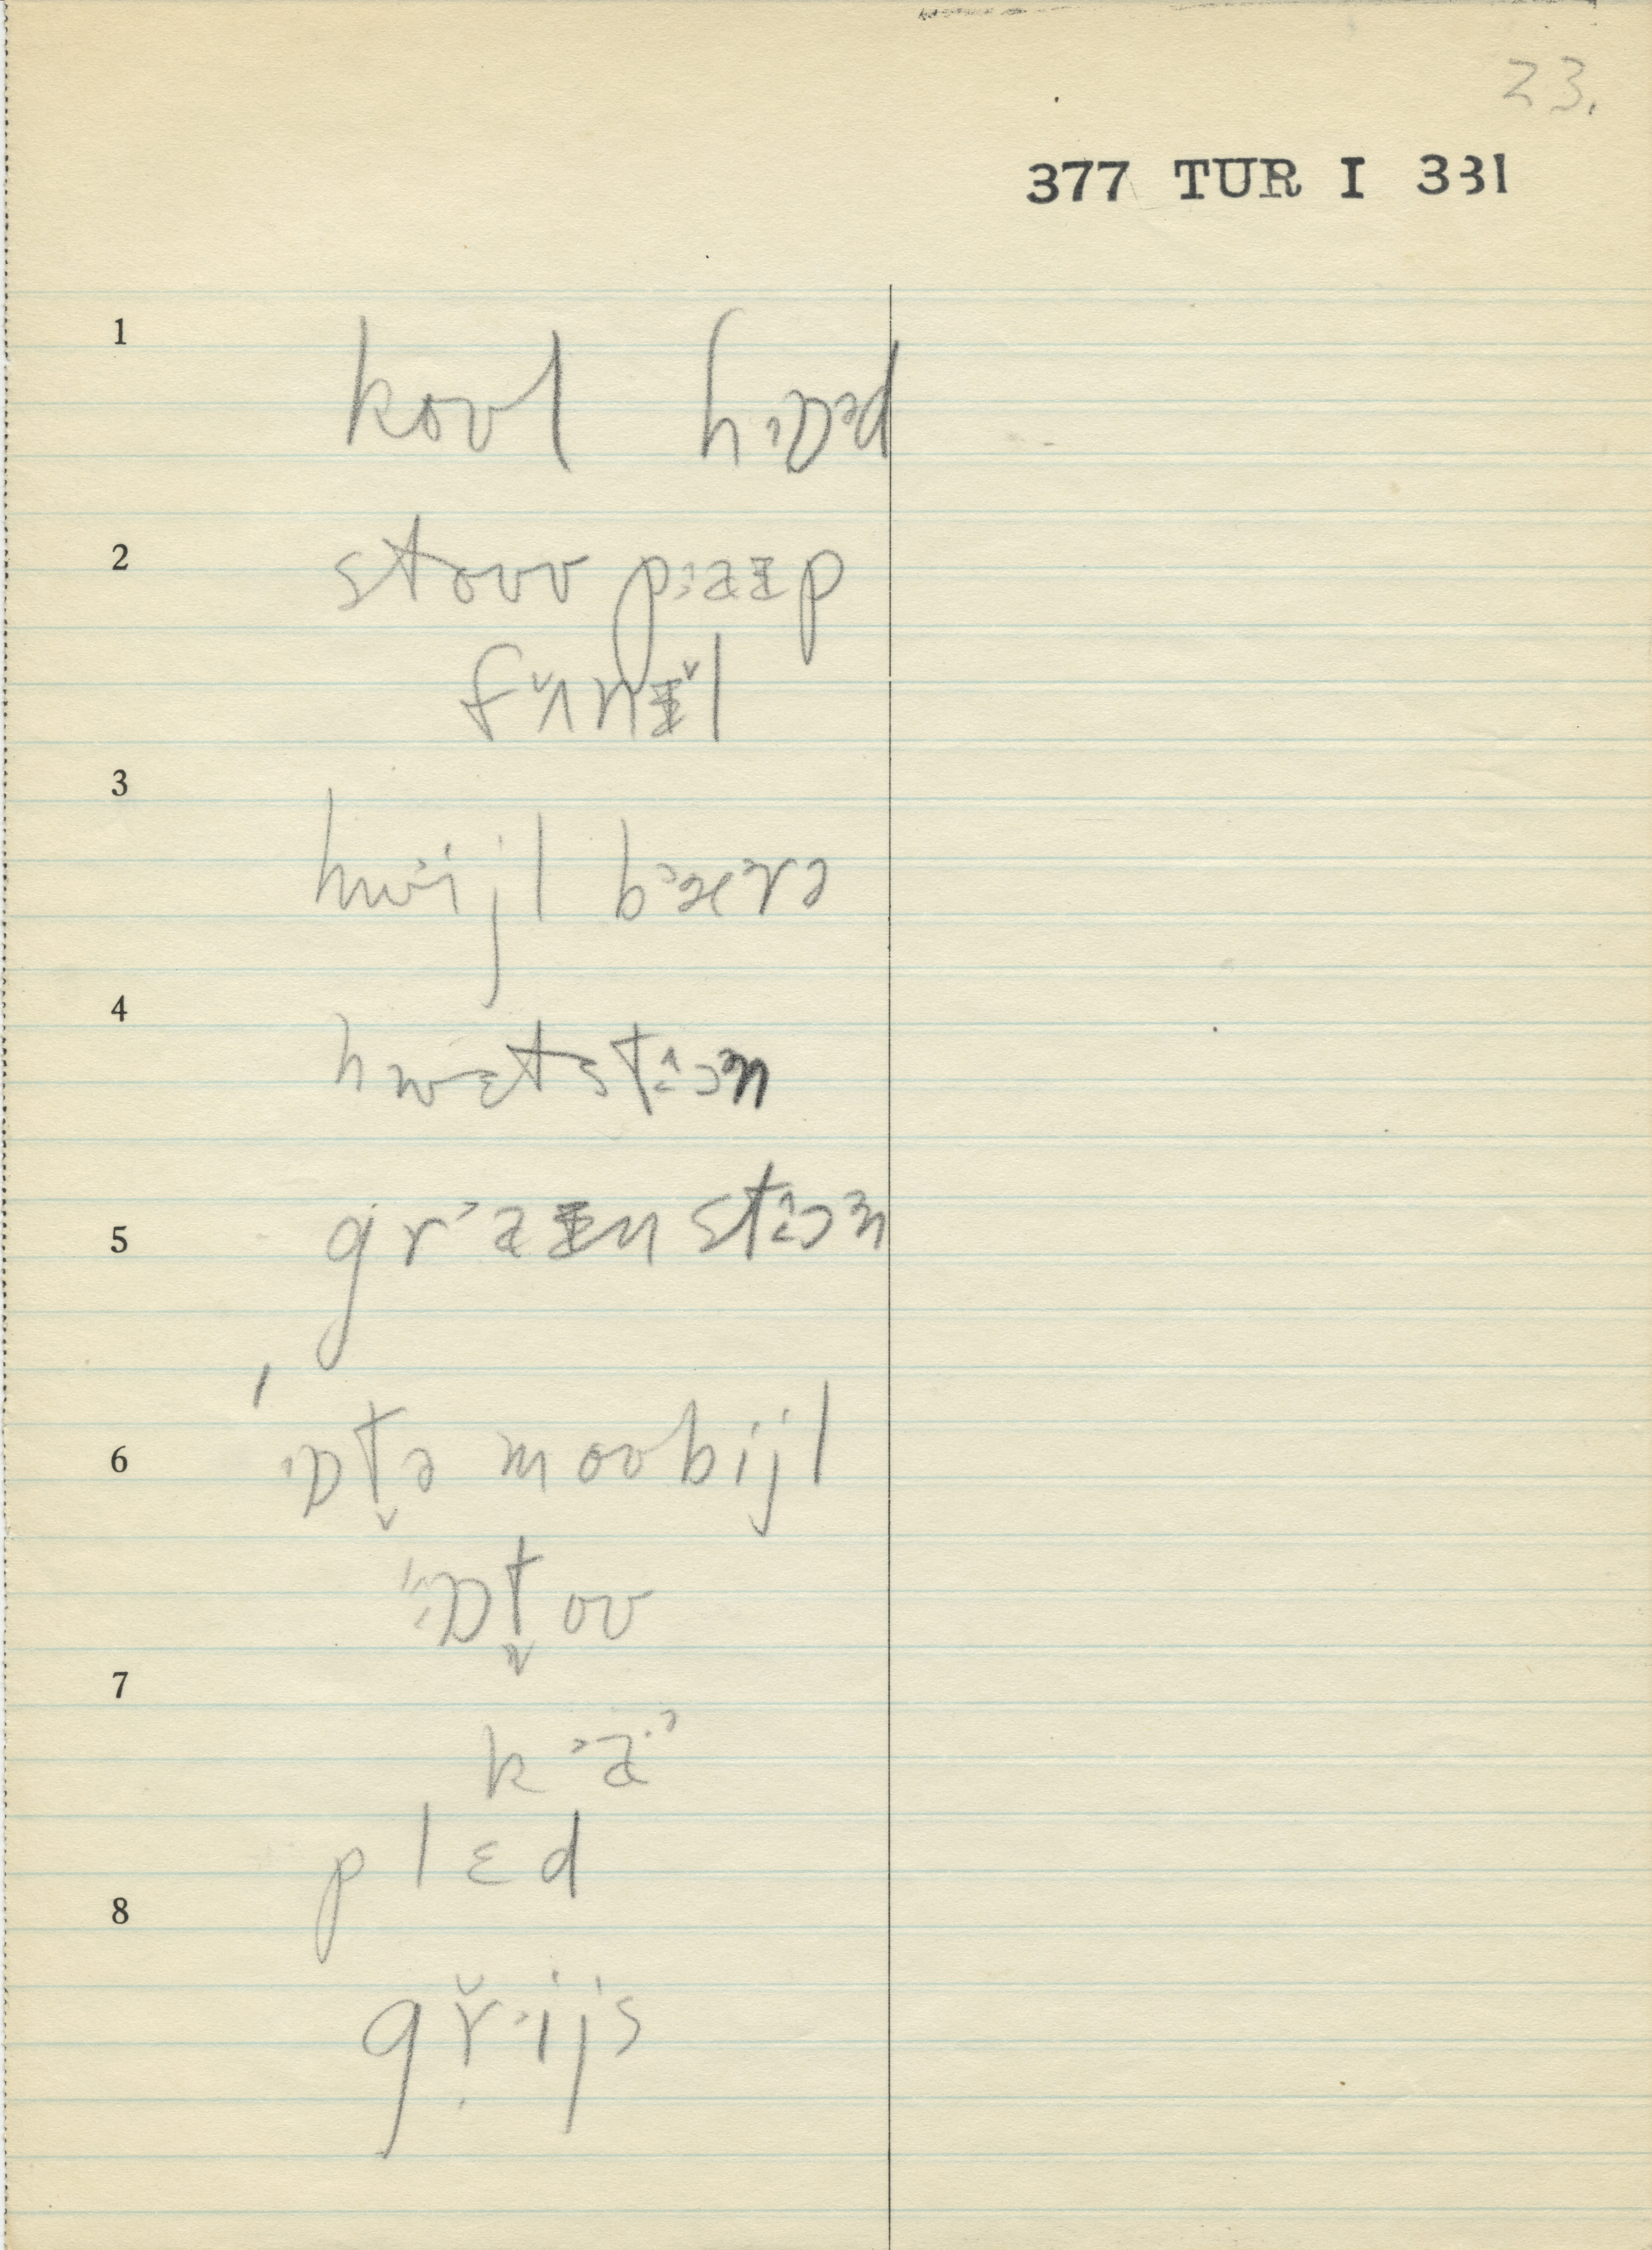 23.
377 TUR I 331
1 koʊl hɒᵊd
2 stoʊv pɑɪp
fʌnɪl
3 hwijl bærə
4 hwɛtstoᵊn
5 graɪnstoᵊn
6 'ɒt̬ə moʊbijl
'ɒt̬oʊ
7 ka
plɛd
8 grijs